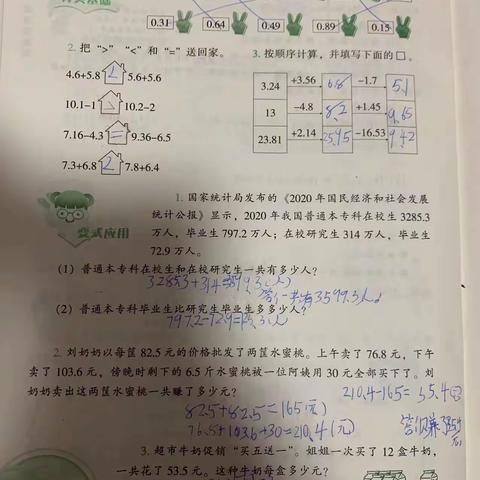 0.31 0.64 0.49 0.89 0.15
2. 把“>”“<”和“=”送回家。
4.6+5.8 5.6+5.6
10.1−1 10.2−2
7.16−4.3 = 9.36−6.5
7.3+6.8 7.8+6.4
3. 按顺序计算，并填写下面的□。
3.24 +3.56 6.8 −1.7 5.1
13 −4.8 8.2 +1.45 9.65
23.81 +2.14 25.95 −16.53 9.42
变式应用
1. 国家统计局发布的《2020 年国民经济和社会发展
统计公报》显示，2020 年我国普通本专科在校生 3285.3
万人，毕业生 797.2 万人；在校研究生 314 万人，毕业生
72.9 万人。
(1) 普通本专科在校生和在校研究生一共有多少人？
(2) 普通本专科毕业生比研究生毕业生多多少人？
2. 刘奶奶以每筐 82.5 元的价格批发了两筐水蜜桃。上午卖了 76.8 元，下午
卖了 103.6 元，傍晚时剩下的 6.5 斤水蜜桃被一位阿姨用 30 元全部买下了。刘
奶奶卖出这两筐水蜜桃一共赚了多少元？
82.5+82.5=165(元)
3. 超市牛奶促销“买五送一”。姐姐一次买了 12 盒牛奶，
一共花了 53.5 元。这种牛奶每盒多少元？